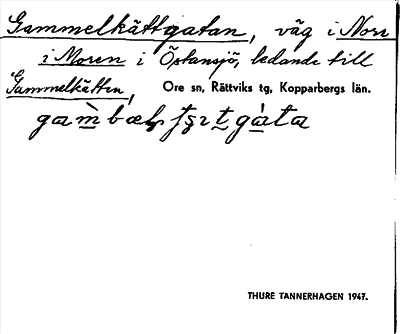 Gammelkättgatan, väg i Norr
i Moren i Östansjö, ledande till
Gammelkätten, Ore sn, Rättviks tg, Kopparbergs län.
THURE TANNERHAGEN 1947.